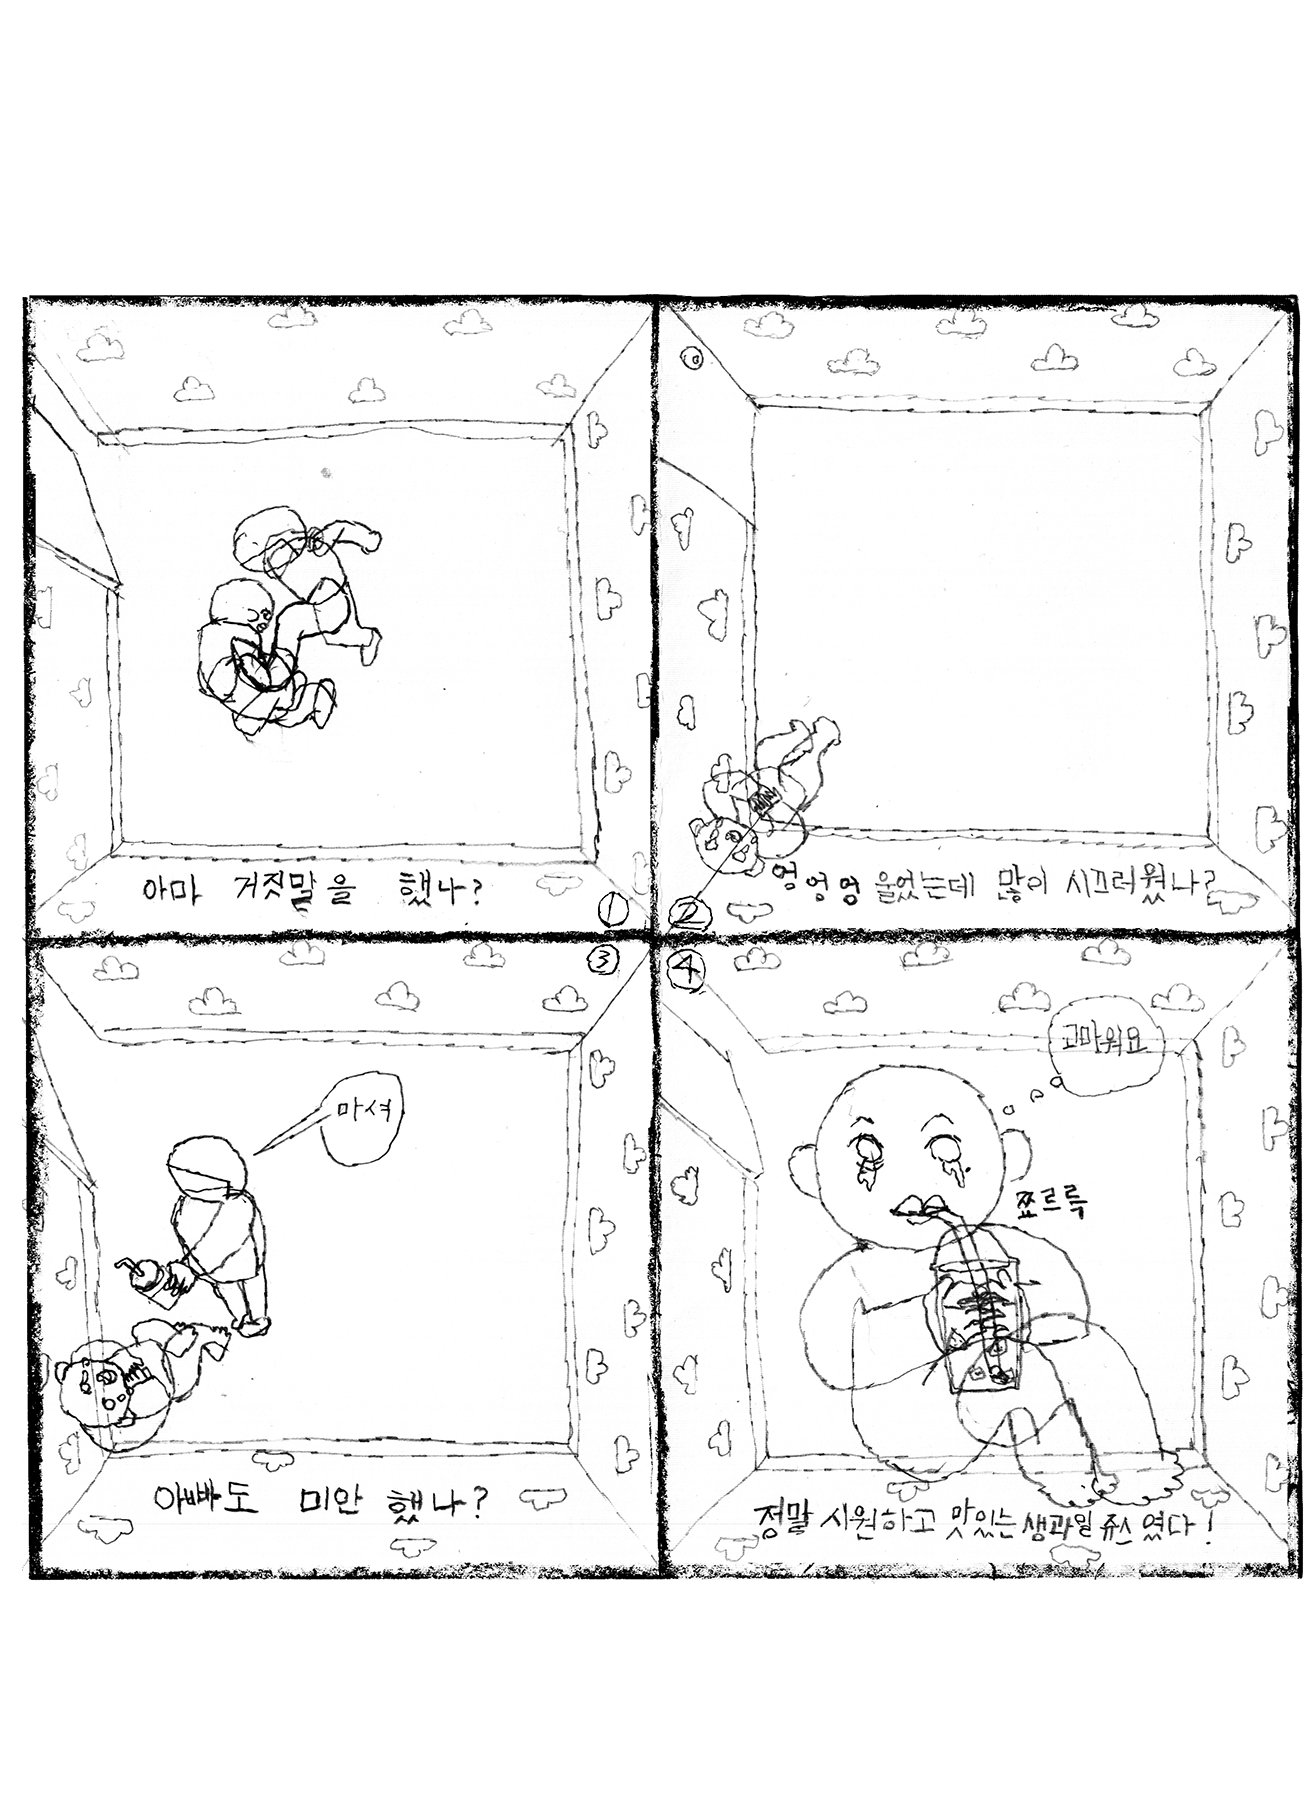 아마 거짓말을 했나?
①
엉엉엉 울었는데 많이 시끄러웠나?
②
③
마셔
아빠도 미안 했나?
④
고마워요
쪼르륵
정말 시원하고 맛있는 생과일 쥬스 였다!